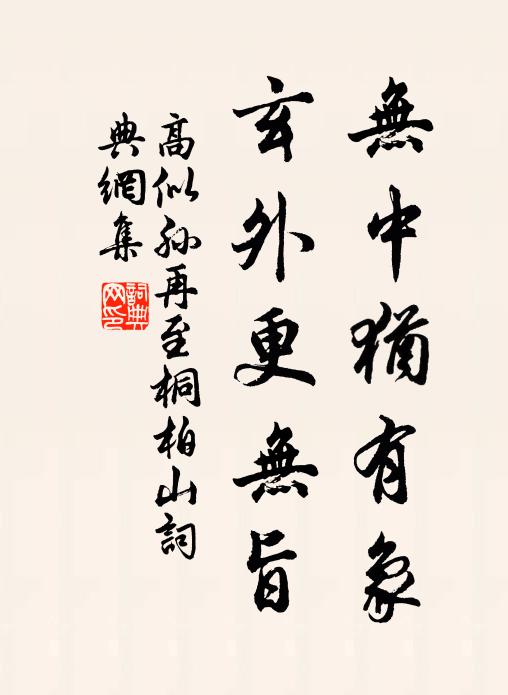 無中猶有象
玄外更無旨
高似孙再至桐柏山詞
典網集
詞典
网印